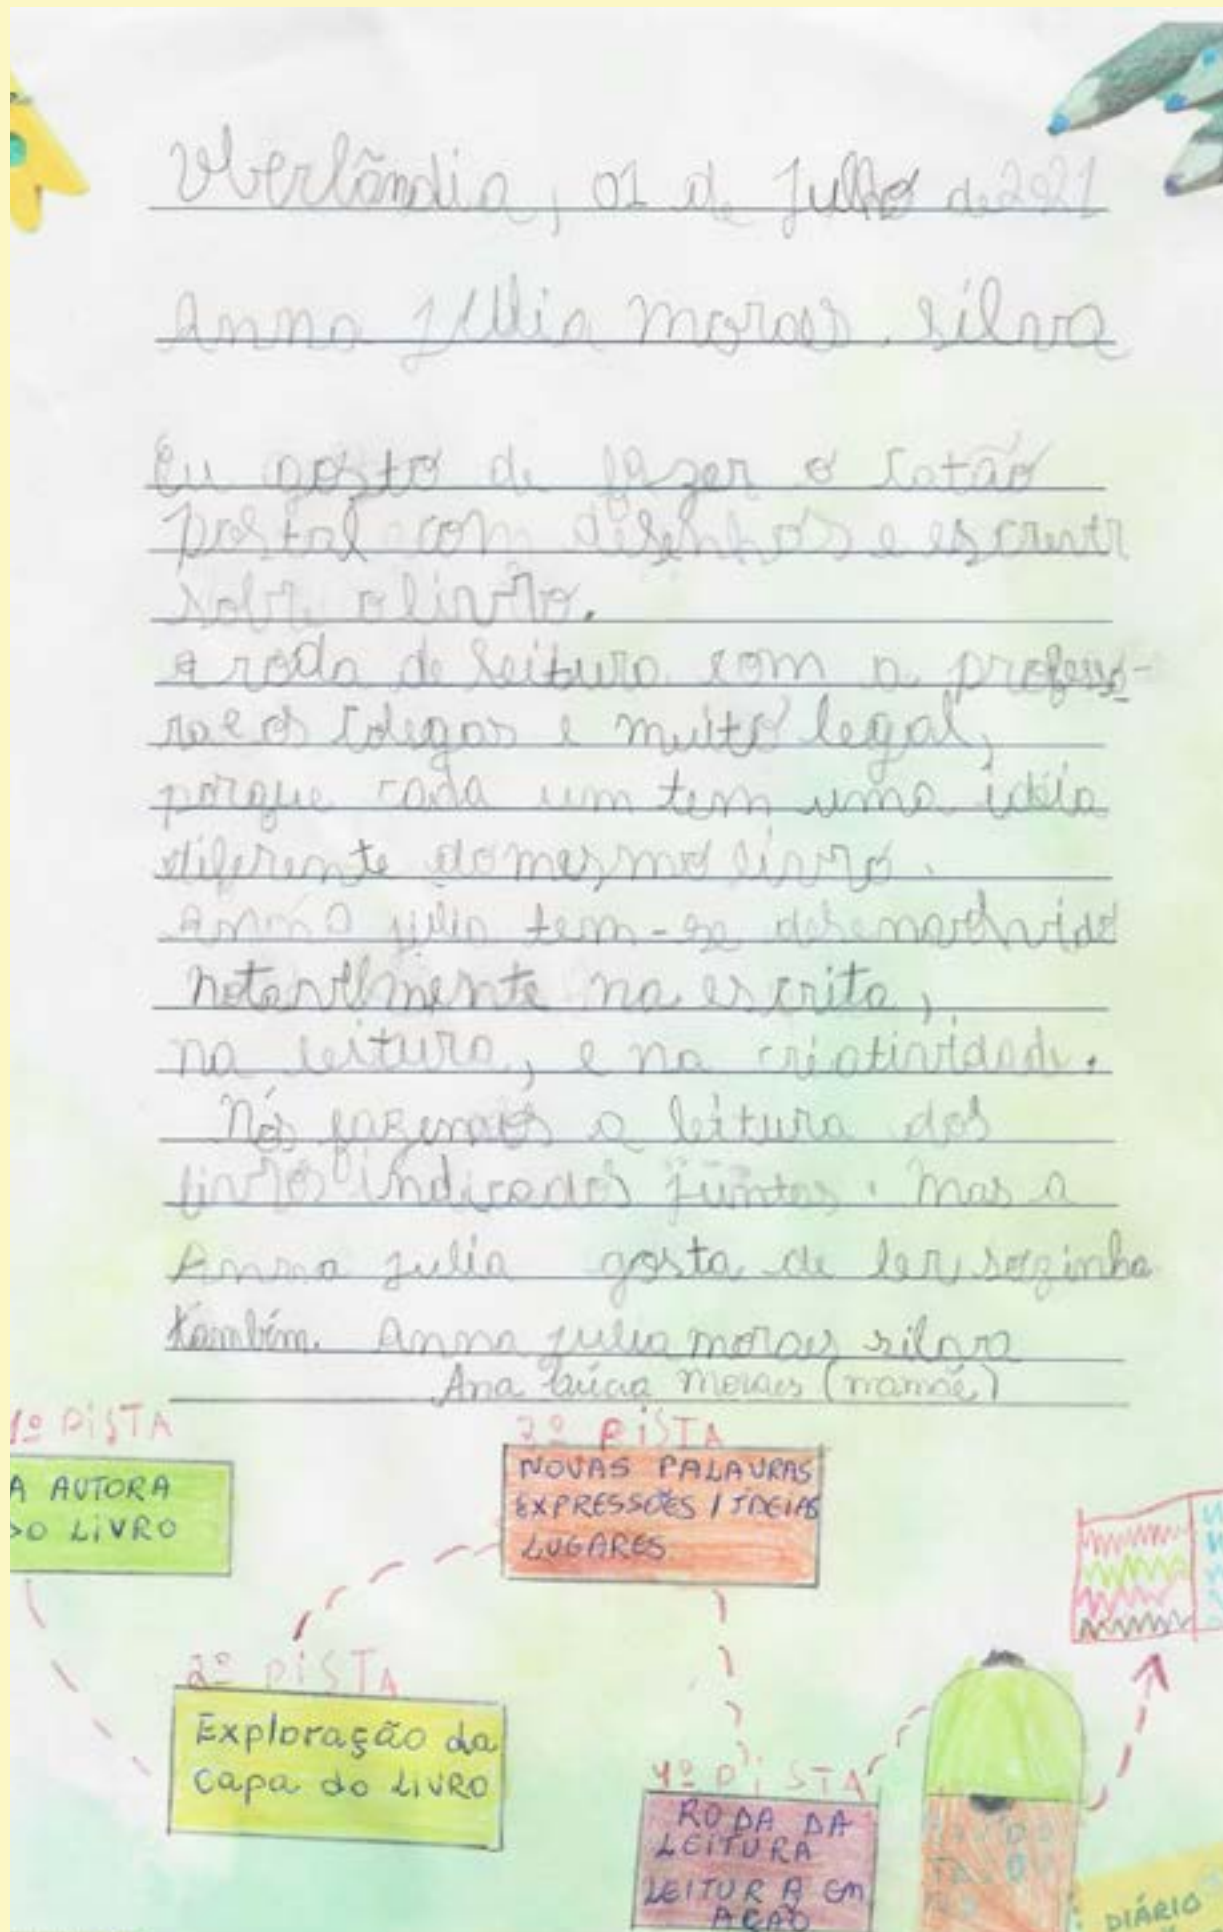 Uberlândia, 01 de Julho de 2021
Anna Júlia moraes silva
Eu gosto de fazer o catão
postal com desenhos e escrevir
sobre o livro.
a roda de leitura com a professo-
ra e os colegas e muito legal,
porque cada um tem uma idéia
diferente do mesmo livro.
Anna júlia tem-se desenvolvido
notavelmente na escrita,
na leitura, e na criatividade.
Nós fazemos a leitura dos
livros indicados juntas. Mas a
Anna julia gosta de ler sozinha
também. Anna julia moraes silva
Ana Lúcia Moraes (mamãe)
1º PISTA
A AUTORA
DO LIVRO
3º PISTA
NOVAS PALAVRAS
EXPRESSÕES / IDEIAS
LUGARES
2º PISTA
Exploração da
Capa do LIVRO
4º PISTA
RODA DA
LEITURA
LEITURA EM
AÇÃO
DIÁRIO